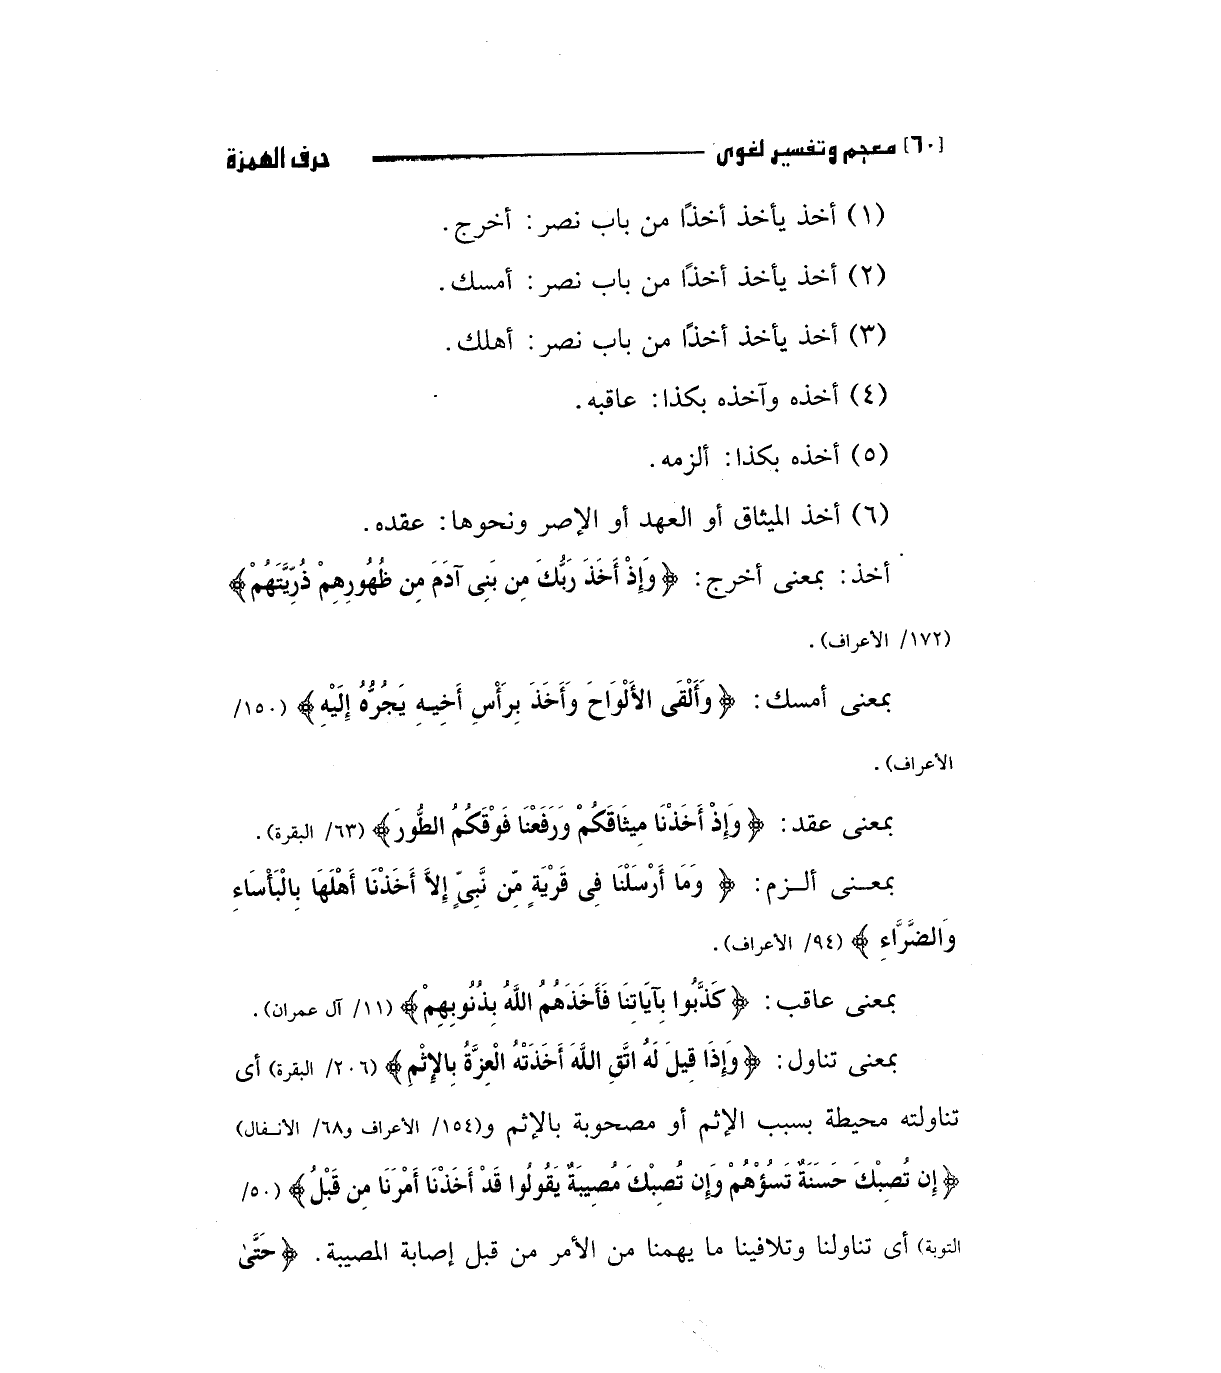 [٦٠] معجم وتفسير لغوى حرف الهمزة
(١) أخذ يأخذ أخذًا من باب نصر : أخرج.
(٢) أخذ يأخذ أخذًا من باب نصر : أمسك.
(٣) أخذ يأخذ أخذًا من باب نصر : أهلك.
(٤) أخذه وآخذه بكذا: عاقبه.
(٥) أخذه بكذا: ألزمه.
(٦) أخذ الميثاق أو العهد أو الإصر ونحوها: عقده.
أخذ: بمعنى أخرج: ﴿وَإِذْ أَخَذَ رَبُّكَ مِن بَنِى آدَمَ مِن ظُهُورِهِمْ ذُرِّيَّتَهُمْ﴾
(١٧٢/ الأعراف).
بمعنى أمسك: ﴿وَأَلْقَى الأَلْوَاحَ وَأَخَذَ بِرَأْسِ أَخِيهِ يَجُرُّهُ إِلَيْهِ﴾ (١٥٠/
الأعراف).
بمعنى عقد: ﴿وَإِذْ أَخَذْنَا مِيثَاقَكُمْ وَرَفَعْنَا فَوْقَكُمُ الطُّورَ﴾ (٦٣/ البقرة).
بمعـنى ألـزم: ﴿ وَمَا أَرْسَلْنَا فِى قَرْيَةٍ مِّن نَّبِىٍّ إِلاَّ أَخَذْنَا أَهْلَهَا بِالْبَأْسَاءِ
وَالضَّرَّاءِ ﴾ (٩٤/ الأعراف).
بمعنى عاقب: ﴿كَذَّبُوا بِآيَاتِنَا فَأَخَذَهُمُ اللَّهُ بِذُنُوبِهِمْ﴾ (١١/ آل عمران).
بمعنى تناول: ﴿وَإِذَا قِيلَ لَهُ اتَّقِ اللَّهَ أَخَذَتْهُ الْعِزَّةُ بِالإِثْمِ﴾ (٢٠٦/ البقرة) أى
تناولته محيطة بسبب الإثم أو مصحوبة بالإثم و(١٥٤/ الأعراف و٦٨/ الأنـفال)
﴿إِن تُصِبْكَ حَسَنَةٌ تَسُؤْهُمْ وَإِن تُصِبْكَ مُصِيبَةٌ يَقُولُوا قَدْ أَخَذْنَا أَمْرَنَا مِن قَبْلُ﴾ (٥٠/
التوبة) أى تناولنا وتلافينا ما يهمنا من الأمر من قبل إصابة المصيبة. ﴿حَتَّىٰ